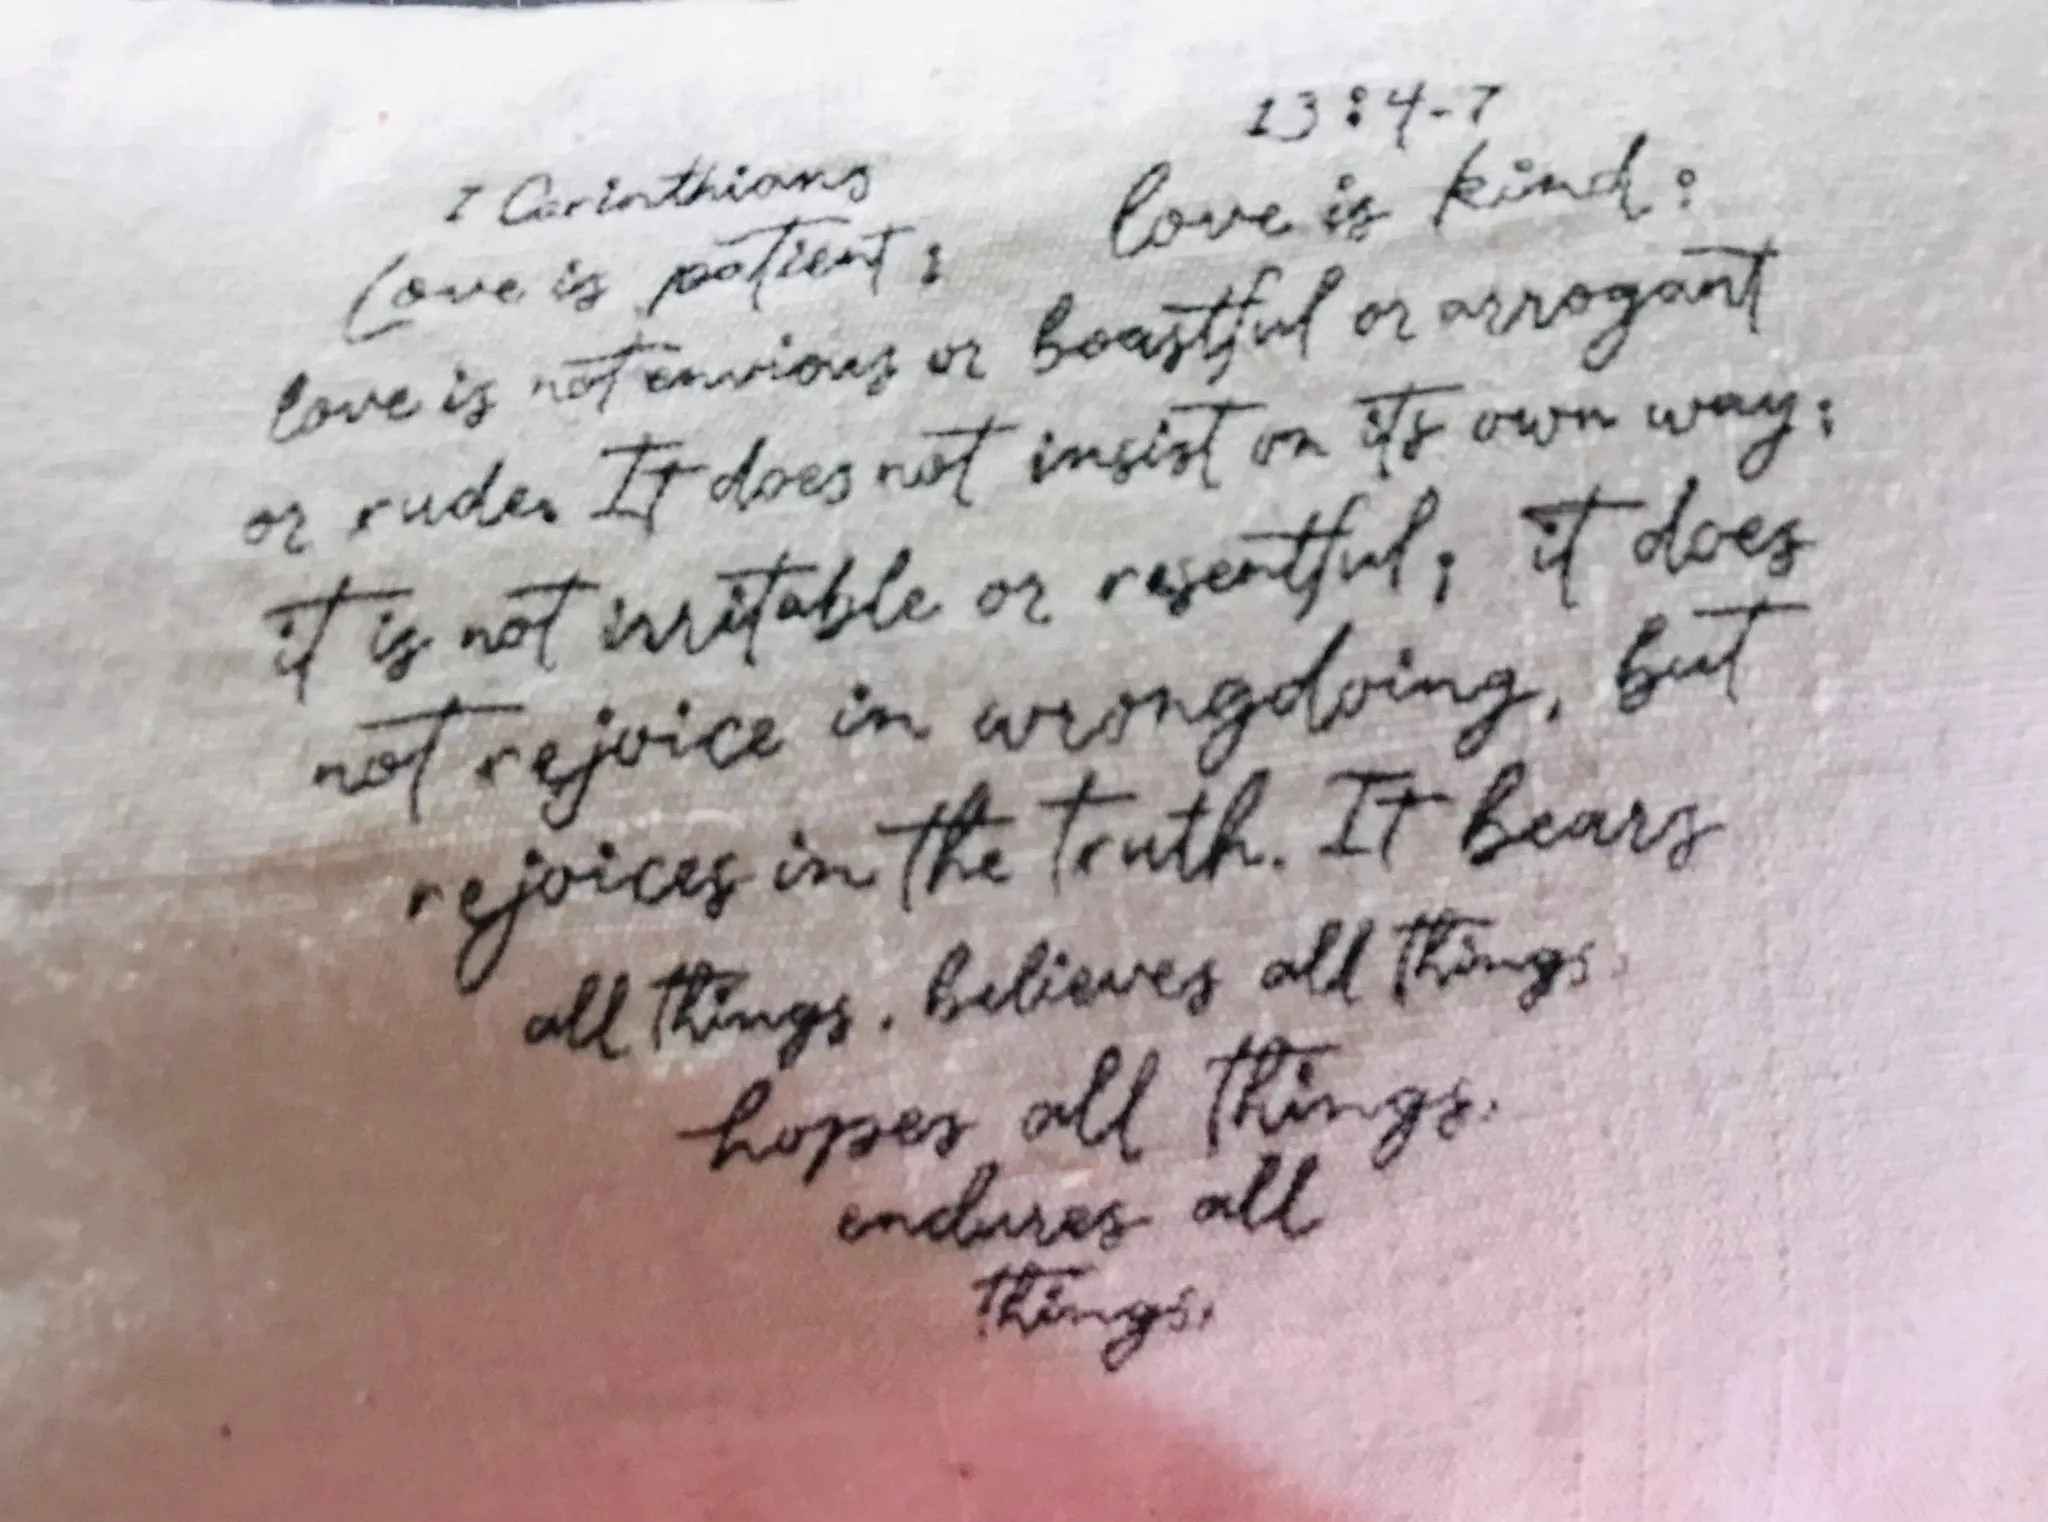 I Corinthians 13:4-7
Love is patient; love is kind;
love is not envious or boastful or arrogant
or rude. It does not insist on its own way;
it is not irritable or resentful; it does
not rejoice in wrongdoing, but
rejoices in the truth. It bears
all things, believes all things,
hopes all things,
endures all
things.